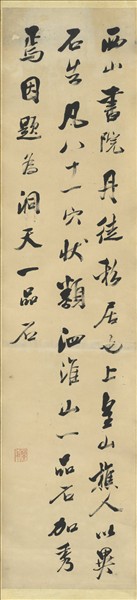 西山書院丹徒私居也上皇山樵人以異
石告凡八十一穴狀類泗淮山一品石加秀
焉因題為洞天一品石